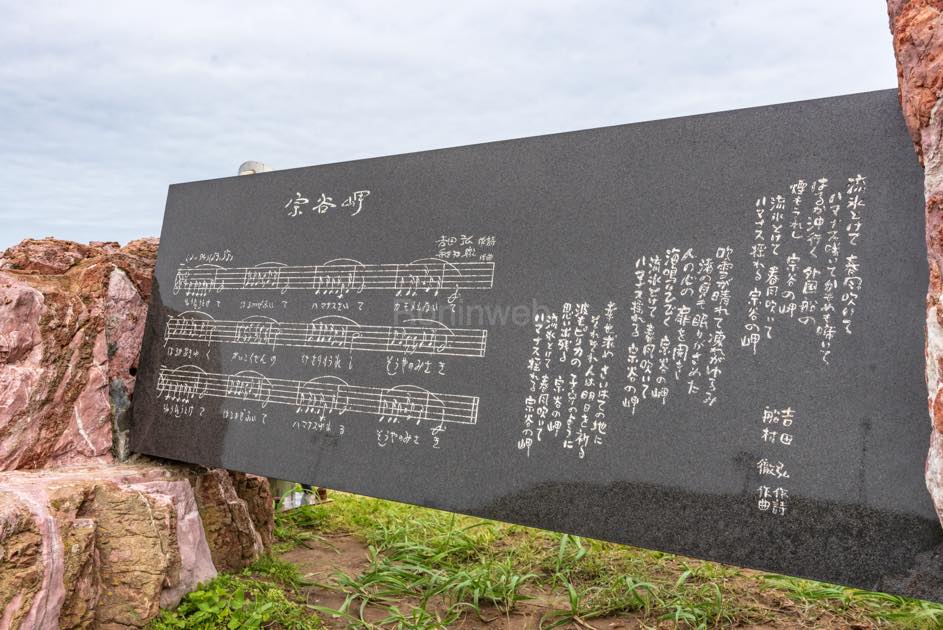 宗谷岬
吉田 弘 作詩
船村 徹 作曲
りゅうひょうとけて はるかぜふいて ハマナスさいて
はるかおきゆく がいこくせんの けむりもうれし そうやのみさき
りゅうひょうとけて はるかぜふいて ハマナスゆれる そうやのみさき
流氷とけて 春風吹いて
ハマナス咲いてカモメも啼いて
はるか沖ゆく 外国船の
煙もうれし 宗谷の岬
流氷とけて 春風吹いて
ハマナス揺れる 宗谷の岬
吹雪が晴れて凍れがゆるみ
渚の貝も眠りがさめた
人の心の扉を開き
海鳴りひびく 宗谷の岬
流氷とけて 春風吹いて
ハマナス揺れる 宗谷の岬
幸せ求め さいはての地に
それぞれ人は明日を祈る
波もピリカの 子守のように
思い出残る 宗谷の岬
流氷とけて 春風吹いて
ハマナス揺れる 宗谷の岬
吉田 弘 作詩
船村 徹 作曲